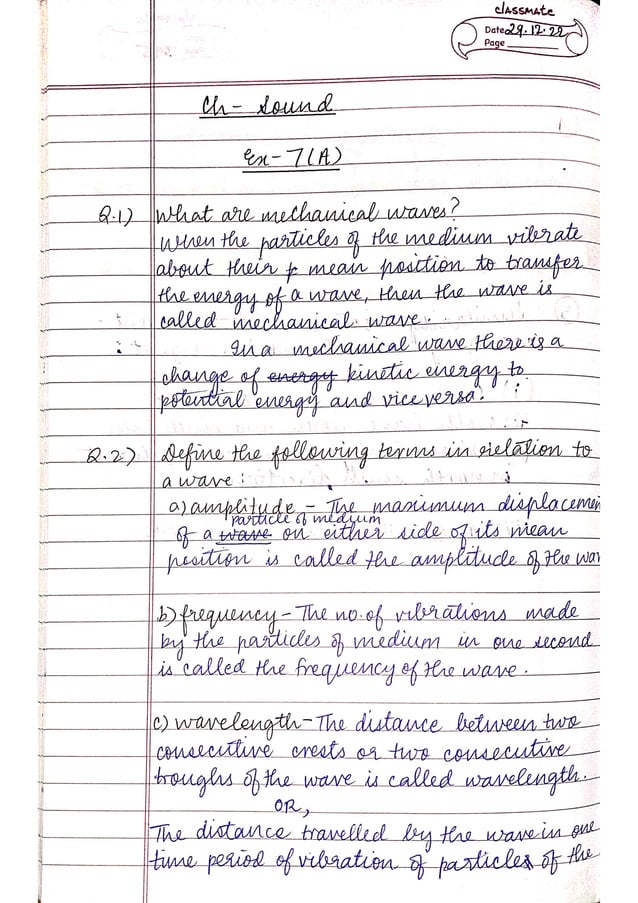 classmate
Date 29.12.22
Page
Ch - Sound
Ex - 7(A)
Q.1) What are mechanical waves?
When the particles of the medium vibrate
about their mean position to transfer
the energy of a wave, then the wave is
called mechanical wave.
In a mechanical wave there is a
change of energy kinetic energy to
potential energy and vice versa.
Q.2) Define the following terms in relation to
a wave:
a) amplitude - The maximum displacemen
particle of medium
of a wave on either side of its mean
position is called the amplitude of the wav
b) frequency - The no. of vibrations made
by the particles of medium in one second
is called the frequency of the wave.
c) wavelength - The distance between two
consecutive crests or two consecutive
troughs of the wave is called wavelength.
OR,
The distance travelled by the wave in one
time period of vibration of particles of the